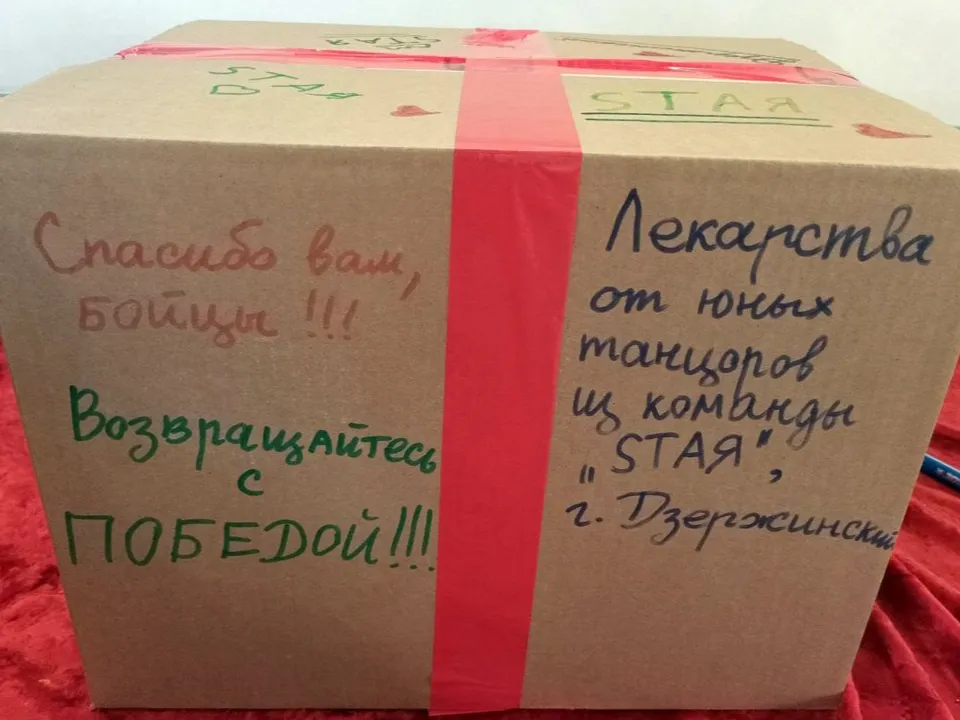 STAЯ
STAЯ
Спасибо вам,
БОЙЦЫ !!!
Возвращайтесь
с
ПОБЕДОЙ!!!
Лекарства
от юных
танцоров
из команды
„STAЯ",
г. Дзержинский